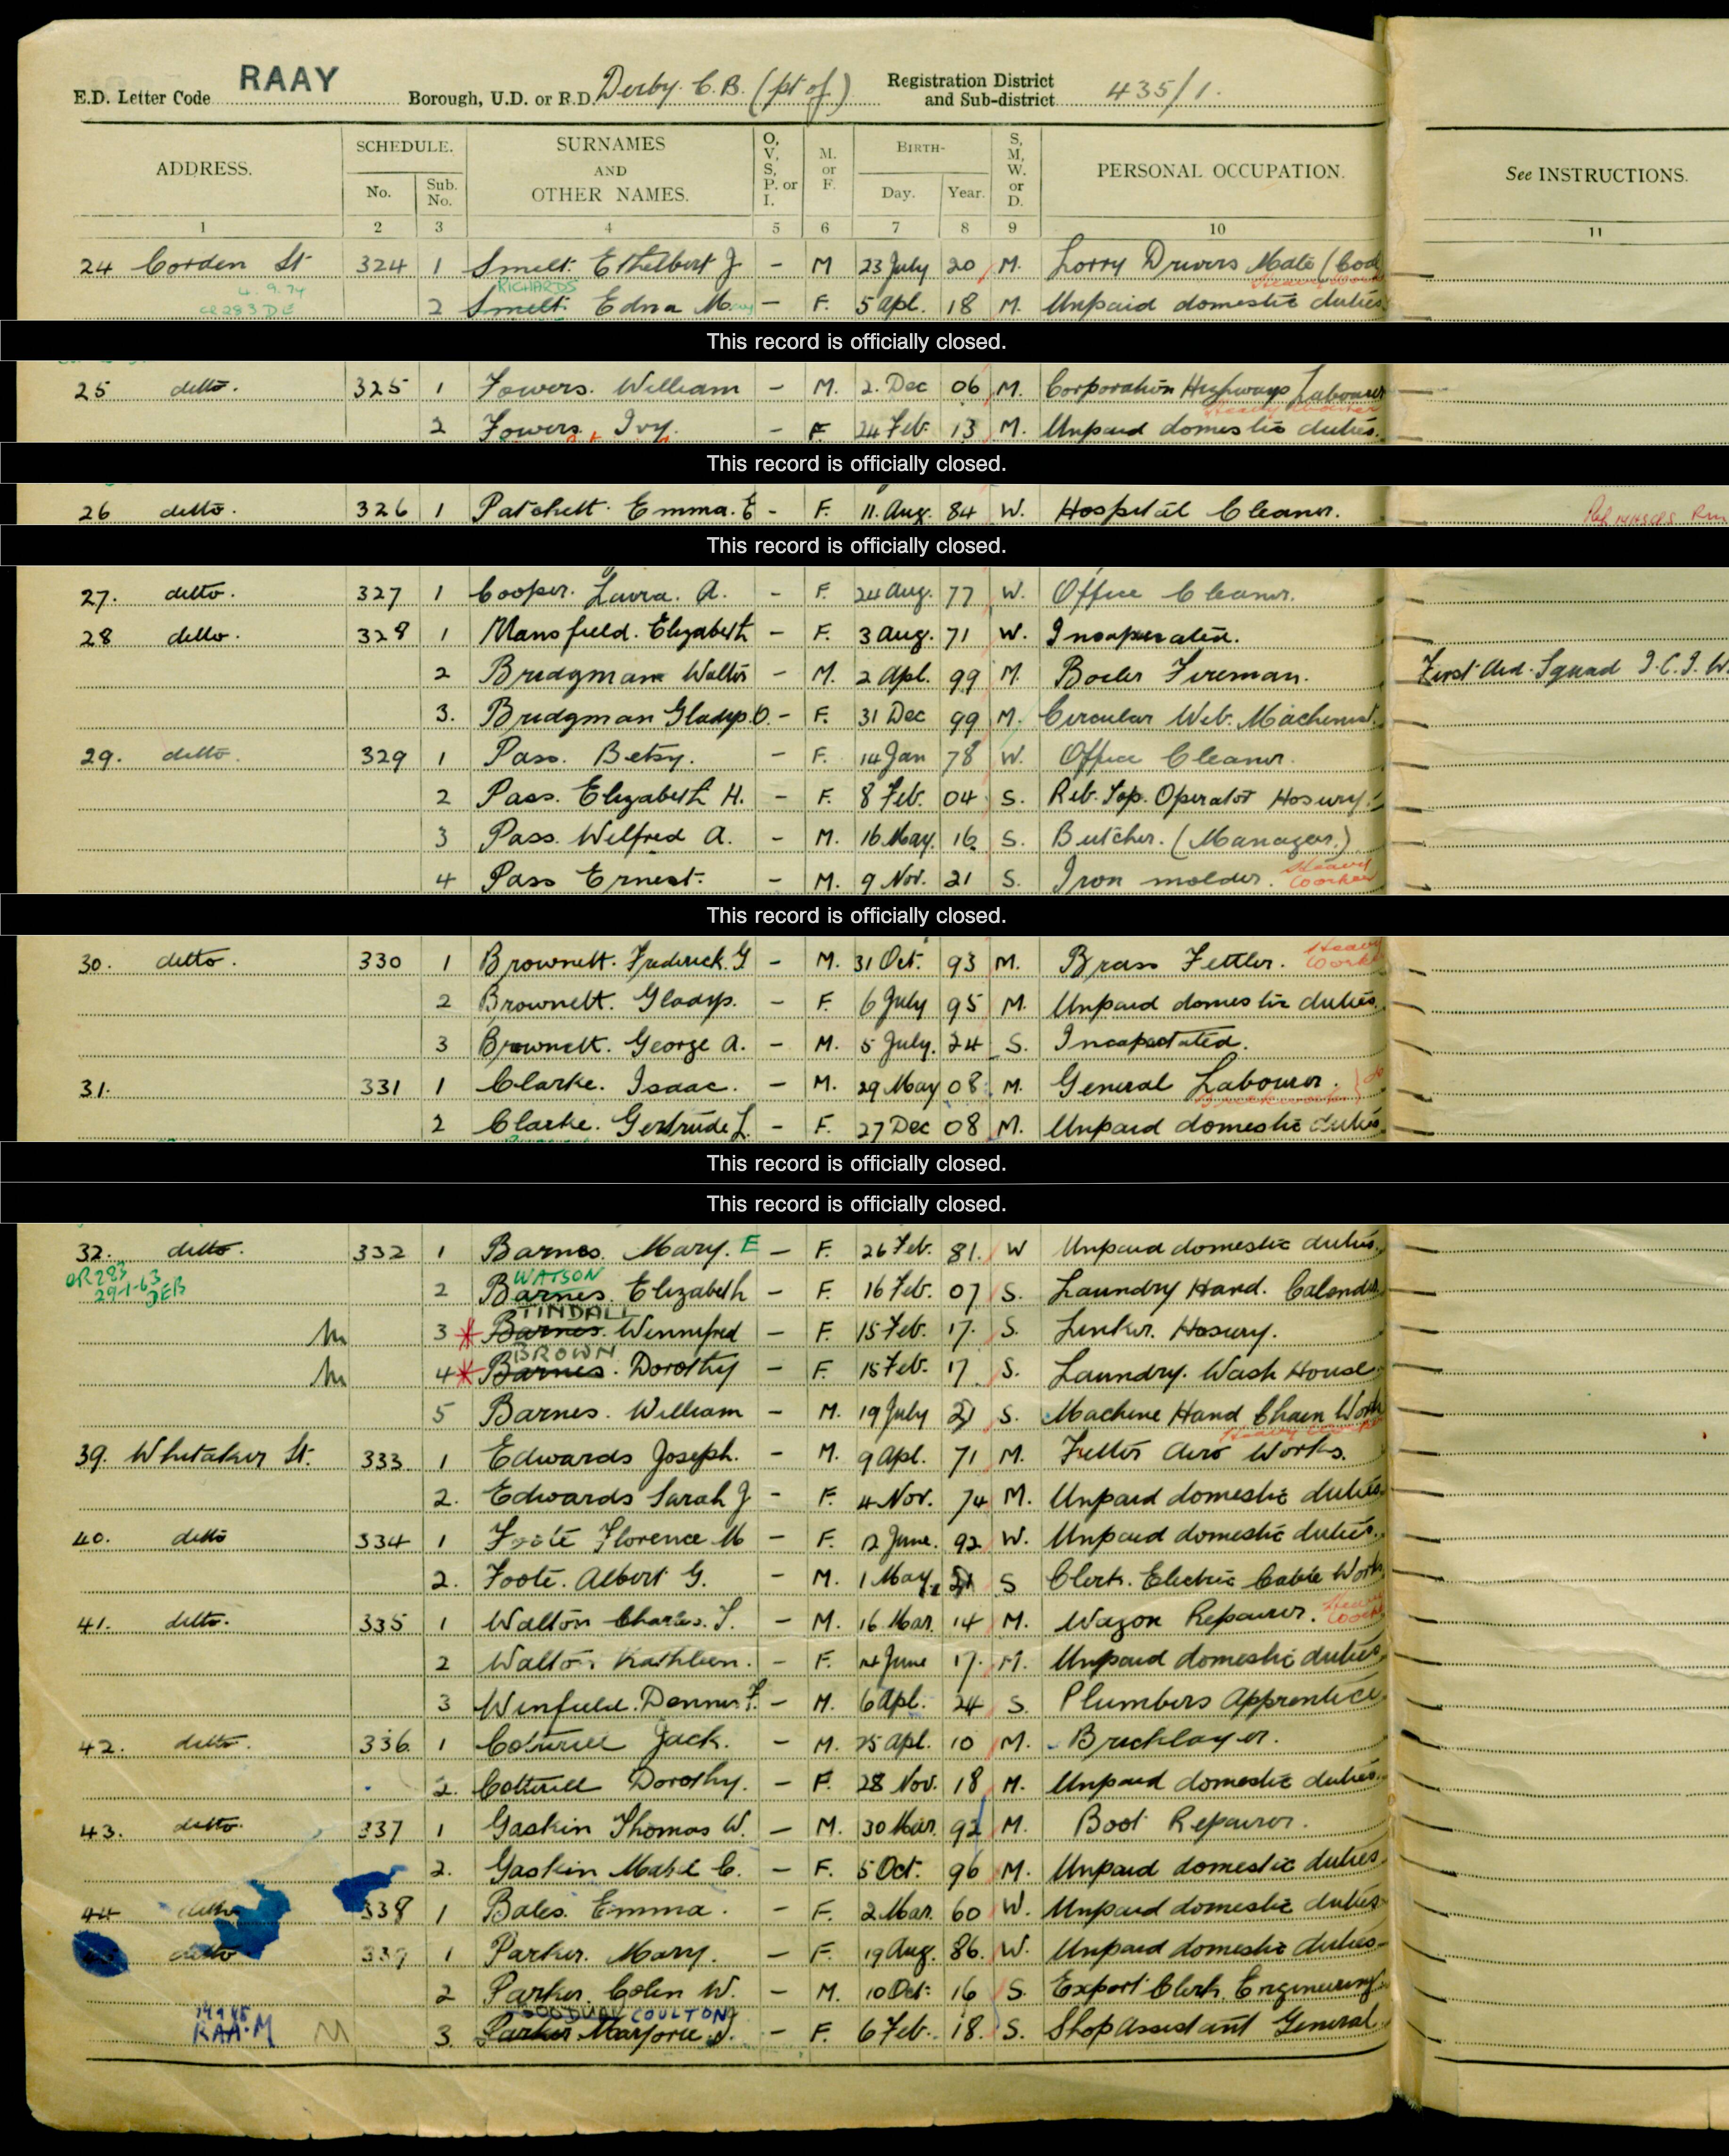 E.D. Letter Code RAAY Borough, U.D. or R.D. Derby C.B. (pt of) Registration District and Sub-district 435/1.
ADDRESS. SCHEDULE. No. Sub. No. SURNAMES AND OTHER NAMES. O, V, S, P. or I. M. or F. BIRTH- Day. Year. S, M, W. or D. PERSONAL OCCUPATION. See INSTRUCTIONS.
1 2 3 4 5 6 7 8 9 10 11
24 Corden St 324 1 Smelt. Ethelbert J - M 23 July 20 M. Lorry Drivers Mate (Coal
4.9.74 RICHARDS
CR283 DE 2 Smelt. Edna M. - F. 5 Apl. 18 M. Unpaid domestic duties
This record is officially closed.
25 ditto. 325 1 Fowers. William - M. 2. Dec 06 M. Corporation Highways Labourer
Heavy Worker
2 Fowers. Ivy. - F 24 Feb 13 M. Unpaid domestic duties.
This record is officially closed.
26 ditto. 326 1 Patchett. Emma. E - F. 11. Aug. 84 W. Hospital Cleaner.
This record is officially closed.
27. ditto. 327 1 Cooper. Laura. A. - F. 24 Aug. 77 W. Office Cleaner.
28 ditto. 328 1 Mansfield. Elizabeth - F. 3 Aug. 71 W. Incapacitated.
2 Bridgman Walter - M. 2 Apl. 99 M. Boiler Fireman. First Aid. Squad I.C.I. W.
3. Bridgman Gladys. O. - F. 31 Dec 99 M. Circular Web. Machinist.
29. ditto. 329 1 Pass. Betsy. - F. 14 Jan 78 W. Office Cleaner.
2 Pass. Elizabeth H. - F. 8 Feb. 04 S. Rib. Top. Operator Hosiery.
3 Pass. Wilfred A. - M. 16 May. 16 S. Butcher. (Manager.)
4 Pass Ernest. - M. 9 Nov. 21 S. Iron molder. Heavy Worker
This record is officially closed.
30. ditto. 330 1 Brownett. Frederick. G - M. 31 Oct. 93 M. Brass Fettler. Heavy Worker
2 Brownett. Gladys. - F. 6 July 95 M. Unpaid domestic duties.
3 Brownett. George A. - M. 5 July. 24 S. Incapacitated.
31. 331 1 Clarke. Isaac. - M. 29 May 08. M. General Labourer.
2 Clarke. Gertrude L. - F. 27 Dec 08 M. Unpaid domestic duties.
This record is officially closed.
This record is officially closed.
32. ditto. 332 1 Barnes. Mary. E - F. 26 Feb. 81. W Unpaid domestic duties.
CR283 29-1-63 JEB WATSON
2 Barnes. Elizabeth - F. 16 Feb. 07 S. Laundry Hand. Calender
TINDALL
M 3 * Barnes. Winnifred - F. 15 Feb. 17. S. Linker. Hosiery.
BROWN
M 4 * Barnes. Dorothy - F. 15 Feb. 17 S. Laundry. Wash House
5 Barnes. William - M. 19 July 21 S. Machine Hand Chain Work
Heavy Worker
39. Whitaker St. 333 1 Edwards Joseph. - M. 9 Apl. 71 M. Fitter Aero Works.
2. Edwards Sarah J - F. 4 Nov. 74 M. Unpaid domestic duties
40. ditto 334 1 Foote Florence M - F. 12 June. 92 W. Unpaid domestic duties.
2. Foote. Albert G. - M. 1 May. 21 S Clerk. Electric Cable Work
41. ditto. 335 1 Walton Charles. T. - M. 16 Mar. 14 M. Wagon Repairer. Heavy Worker
2 Walton Kathleen. - F. June 17. M. Unpaid domestic duties
3 Winfield. Dennis. F. - M. 6 Apl. 24 S. Plumbers Apprentice
42. ditto. 336. 1 Cotterill Jack. - M. 25 Apl. 10 M. Bricklayer.
2. Cotterill Dorothy. - F. 28 Nov. 18 M. Unpaid domestic duties.
43. ditto. 337 1 Gaskin Thomas W. - M. 30 Mar. 92 M. Boot Repairer.
2. Gaskin Mabel C. - F. 5 Oct. 96 M. Unpaid domestic duties
44 ditto 338 1 Bales. Emma. - F. 2 Mar. 60 W. Unpaid domestic duties
ditto 339 1 Parker. Mary. - F. 19 Aug. 86. W. Unpaid domestic duties
2 Parker. Colin W. - M. 10 Oct. 16 S. Export Clerk. Engineering
COULTON
RAA-M M 3. Parker Marjorie J. - F. 6 Feb. 18. S. Shop Assistant General